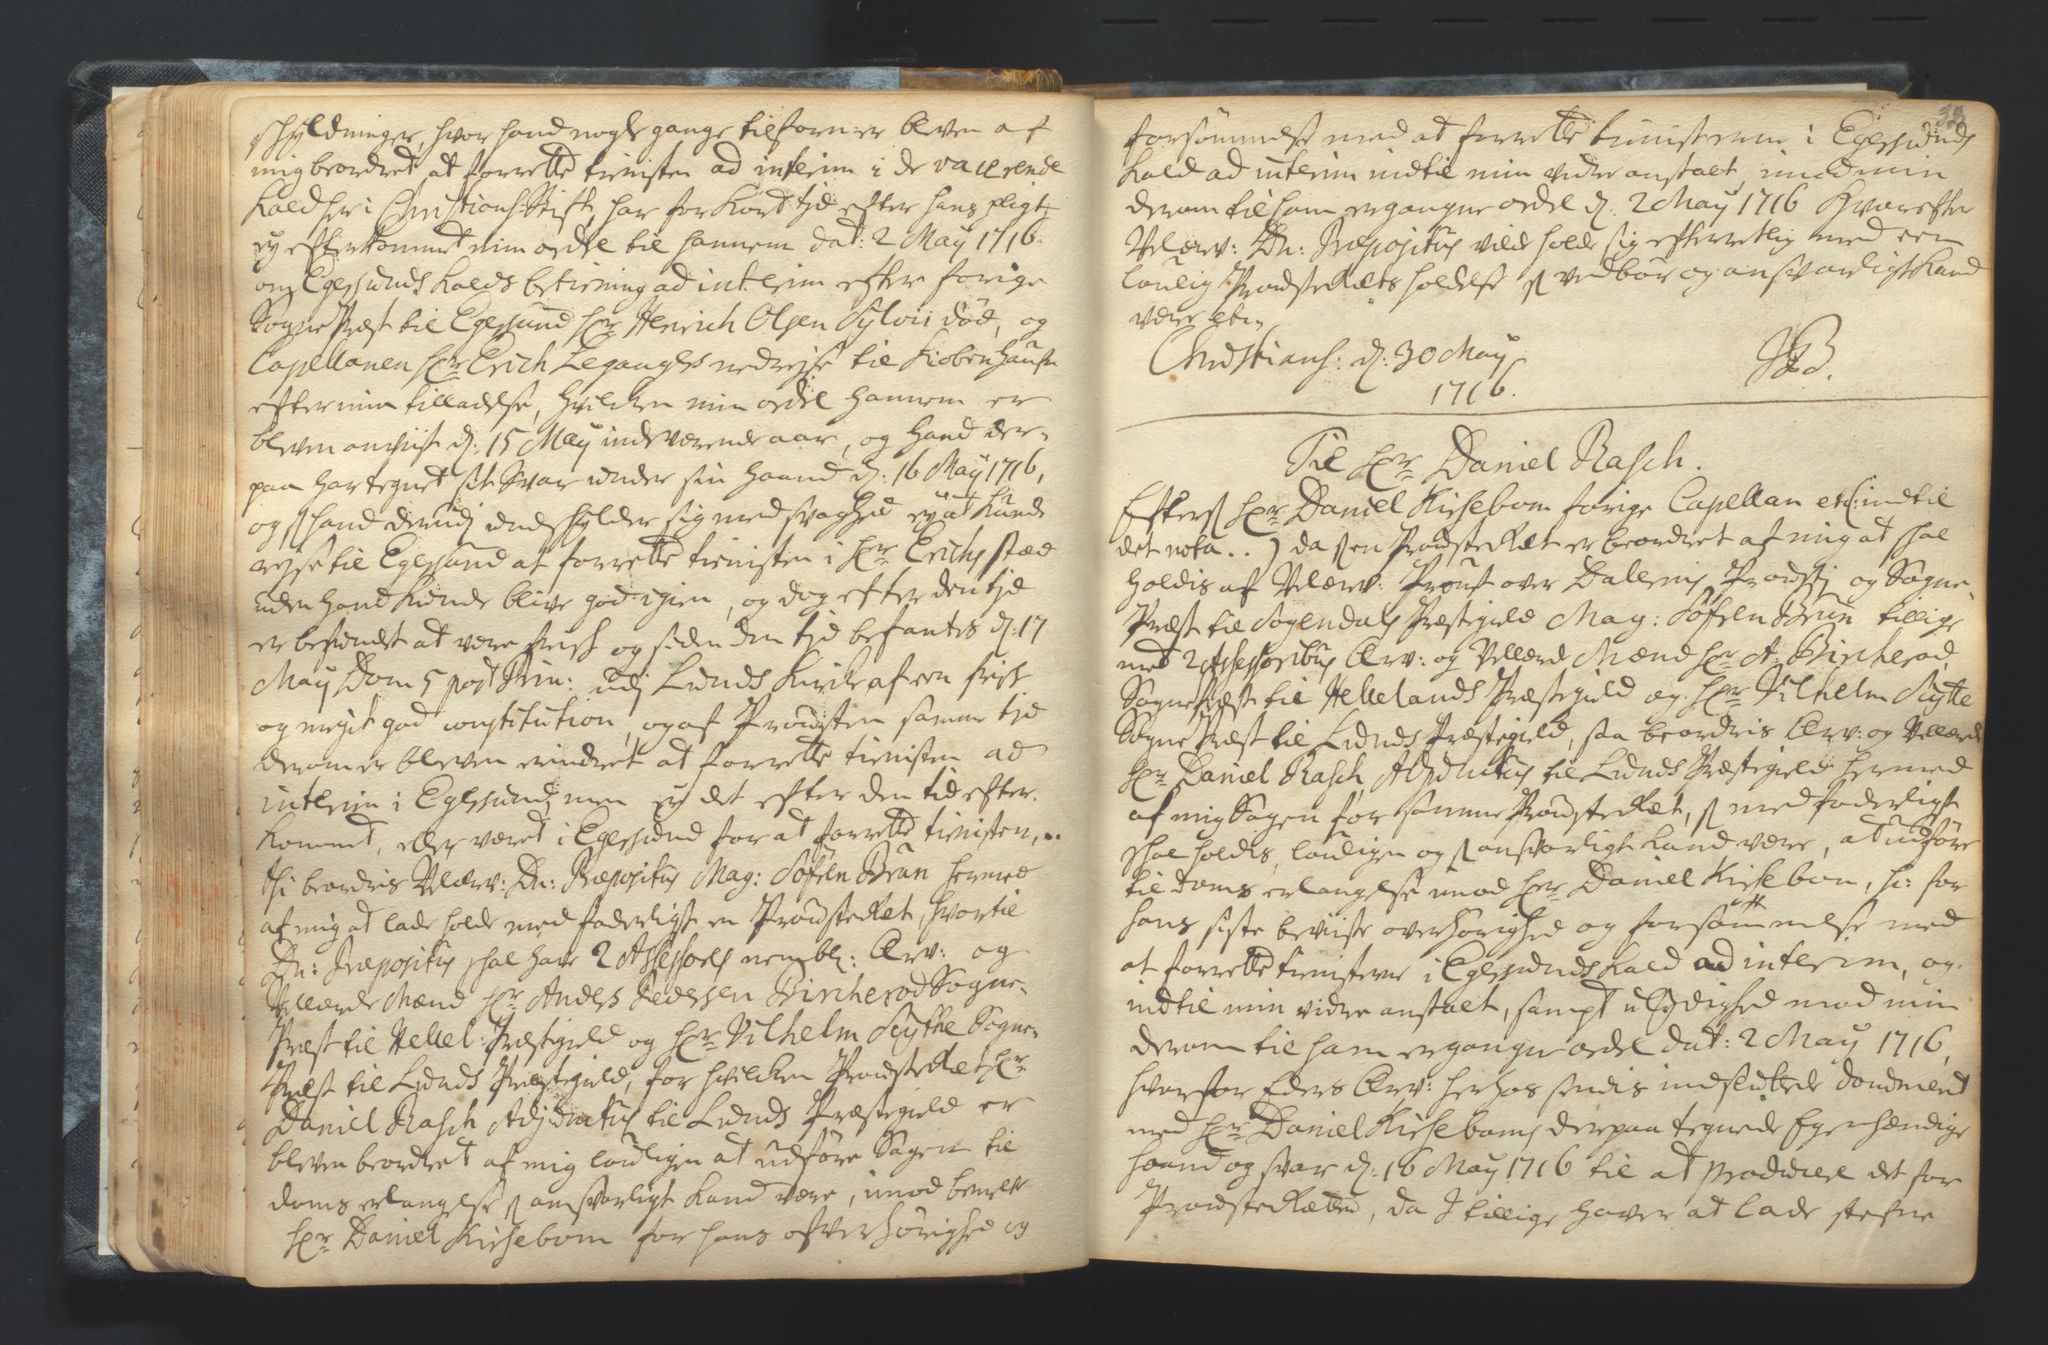 skyldninger, hvor hand nogle gange tilforn er bleven af
mig beordret at forrette tienisten ad interim i de vacerende
Kald her i Christians: Stift, har for Kort tjd efter hans pligt
ey efterkommet min ordre til hannem dat: 2 May 1716
om Egersunds Kalds betiening ad interim efter forige
Sogne Præst til Egersund hr Henrich Olsen Sylvii död, og
Capellanen hr Erich Leganger nedrejse til Kiöbenhaufn
efter min tilladelse, hvilcken min ordre hannem er
bleven anviist d: 15 May indeværende aar, og hand der-
paa har tegnet sit Svar under sin Haand d: 16 May 1716,
og s hand derudj undskylder sig med svaghed ey at Kunde
rejse til Egersund at forrette tienisten i hr Erichs stæd
uden hand Kunde blive god igien, og dog efter den tjd
er befundet at være frisk og siden den tjd befantes d: 17
May Dom 5 post Trin: udj Lunds Kircke af een frisk
og meget god constitution, og af Prousten samme tjd
derom er bleven erindret at forrette tienisten ad
interim i Egersund, men ey det efter den tid efter-
kommet, eller været i Egersund for at forrette tienisten,
thi beordris Velærv: Dn: Præpositus Mag: Söfren Brun hermed
af mig at lade holde med forderligste en Prouste Ræt, hvortil
Dn: Præpositus skal have 2 Assessores nembl: Ærv: og
Vellærde Mænd hr Anders Pedersen Bircherod Sogne-
Præst til Hellel: Præstegield og hr Vilhelm Sytte Sogne-
Præst til Lunds Præstegield, for hvilcken Prouste Ræt hr
Daniel Rasch Adjunctus til Lunds Præstegield er
bleven beordret af mig lovligen at udföre Sagen til
doms erlangelse s ansvarligt Kand være, imod bemelte
hr Daniel Kirsebom for hans ofverhörighed og
forsömmelse med at forrette tienisterne i Egersunds
Kald ad interim indtil min vidre anstalt imod min
derom til ham ergangne ordre d: 2 May 1716 hvorefter
Velærv: Dn: Præpositus vilde holde sig efterretlig med een
lovlig Prouste Rets holdelse s vedbör og ansvarligt Kand
være etc.
Christians: d: 30 May
1716.
JB.
Til hr Daniel Rasch.
Efters hr Daniel Kirsebom forige Capellan etc: indtil
det nota . . ) da s en Prouste Ræt er beordret af mig at skal
holdis af Velærv: Proust over Dallernes Proustj og Sogne-
Præst til Sogendals Præstegield Mag: Söfren Brun tillige
med 2 Assessoribus Ærv: og Vellærde Mænd hr A: Bircherod
Sogne Præst til Hellelands Præstegield og hr Vilhelm Sytte
Sogne Præst til Lunds Præstegield, saa beordris Ærv: og Vellærde
hr Daniel Rasch Adjunctus til Lunds Præstegield hermed
af mig Sagen for samme Prouste Ræt, s med forderligste
skal holdis, lovligen og s ansvarligt Kand være, at udföre
til doms erlangelse imod hr Daniel Kirsebom, for
hans siste beviste overhörighed og forsömmelse med
at forrette tienisterne i Egersunds Kald ad interim, og
indtil min vidre anstalt, sampt ulydighed mod min
derom til ham ergangne ordre dat: 2 May 1716,
hvorfor Eders Ærv: herhos sendis indsluttede document
med hr Daniel Kirseboms derpaa tegnede Egenhændige
haand og svar d: 16 May 1716 til at producere det for
Prouste Rætten, da I tillige haver at lade stefne